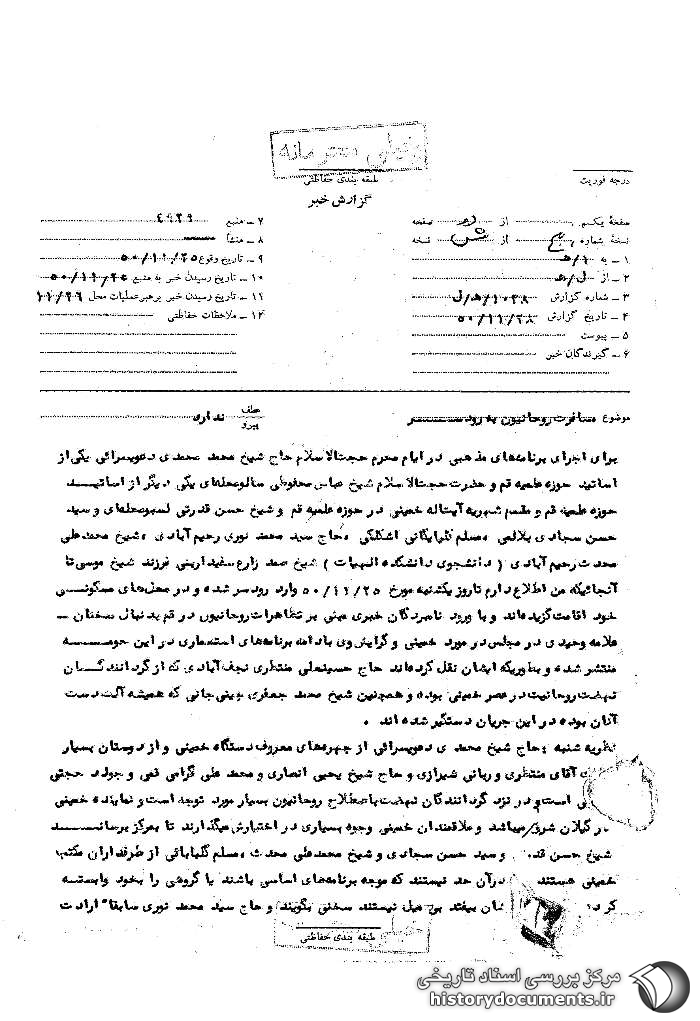 خیلی محرمانه
طبقه بندی حفاظتی
درجه فوریت
گزارش خبر
صفحهٔ یکم از صفحه
نسخهٔ شماره از نسخه
۱ ـ به
۲ ـ از
۳ ـ شماره گزارش
۴ ـ تاریخ گزارش ۵۰/۱۱/۲۸
۵ ـ پیوست
۶ ـ گیرندگان خبر
۷ ـ منبع ۴۹۲۹
۸ ـ منشأ
۹ ـ تاریخ وقوع ۵۰/۱۱/۲۵
۱۰ ـ تاریخ رسیدن خبر به منبع
۱۱ ـ تاریخ رسیدن خبر برهبر عملیات محل ۱۱/۲۶
۱۲ ـ ملاحظات حفاظتی
موضوع مسافرت روحانیون به رودسر
عطف
پیرو
ندارد
برای اجرای برنامه‌های مذهبی در ایام محرم حجت‌الاسلام حاج شیخ محمد محمدی دعویسرائی یکی از
اساتید حوزه علمیه قم و حضرت حجت‌الاسلام شیخ عباس محفوظی سالومحله‌ای یکی دیگر از اساتید
حوزه علمیه قم و مقسم شهریه آیت‌اله خمینی در حوزه علمیه قم و شیخ حسن قدرتی لسبومحله‌ای و سید
حسن سجادی بلالمی، مسلم گلپایگانی اشکلکی، حاج سید محمد نوری رحیم آبادی، شیخ محمدعلی
محدث رحیم آبادی ( دانشجوی دانشکده الهیات ) شیخ صمد زارع سفیداربنی فرزند شیخ موسی تا
آنجائیکه من اطلاع دارم تا روز یکشنبه مورخ ۵۰/۱۱/۲۵ وارد رودسر شده و در محل‌های مسکونی
خود اقامت گزیده‌اند و با ورود نامبردگان خبری مبنی بر تظاهرات روحانیون در قم بدنبال سخنان ـ
علامه وحیدی در مجلس در مورد خمینی و گرایش وی بادامه برنامه‌های استعماری در این حوصه
منتشر شده و بطوریکه ایشان نقل کرده‌اند حاج حسینعلی منتظری نجف آبادی که از گردانندگان
نهضت روحانیت در عصر خمینی بوده و همچنین شیخ محمد جعفری جانی که همیشه آلت دست
آنان بوده در این جریان دستگیر شده‌اند .
نظریه شنبه ، حاج شیخ محمدی دعویسرائی از چهره‌های معروف دستگاه خمینی و از دوستان بسیار
آقای منتظری و ربانی شیرازی و حاج شیخ یحیی انصاری و محمد علی گرامی قمی و جواد حجتی
است و در نزد گردانندگان نهضت باصطلاح روحانیون بسیار مورد توجه است و نماینده خمینی
در گیلان شرق میباشد و علاقمندان خمینی وجوه بسیاری در اختیارش میگذارند تا بمرکز برساند
شیخ حسن و سید حسن سجادی و شیخ محمدعلی محدث، مسلم از طرفداران مکتب
خمینی هستند در آن حد نیستند که موجه برنامه‌های اساسی باشند یا گروهی را بخود وابسته
بیفتد بی میل نیستند سخنی بگویند و حاج سید محمد نوری سابقاً ارادت
طبقه بندی حفاظتی
مرکز بررسی اسناد تاریخی
historydocuments.ir